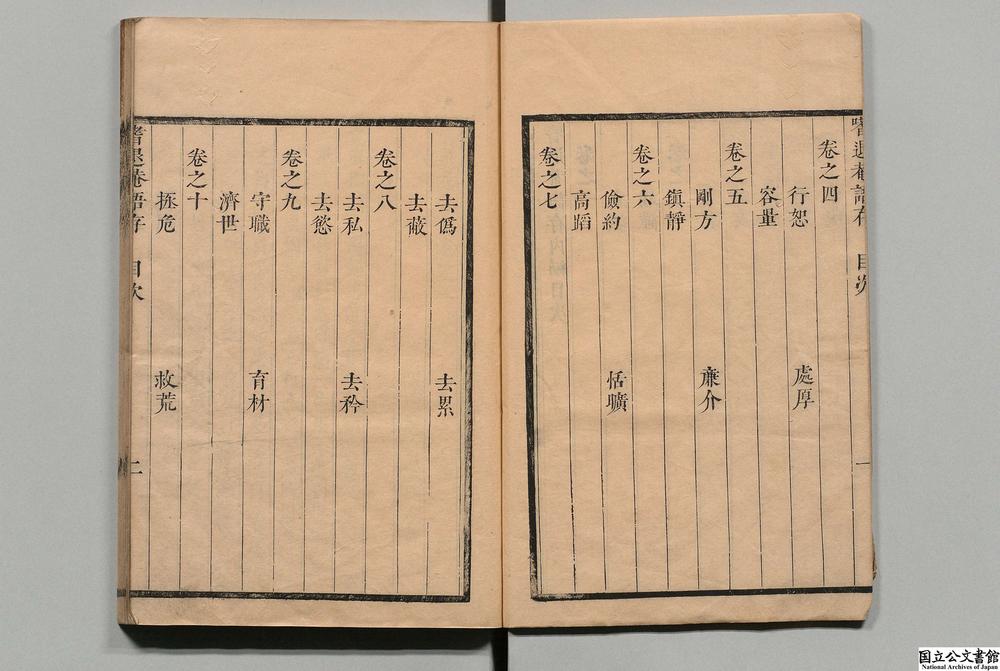 卷之四
行恕 處厚
容量
卷之五
剛方 亷介
鎮靜
卷之六
儉約 恬曠
高蹈
卷之七
去僞 去累
去蔽
卷之八
去私 去矜
去慾
卷之九
守職 育材
濟世
卷之十
拯危 救荒
目次
二
国立公文書館
National Archives of Japan